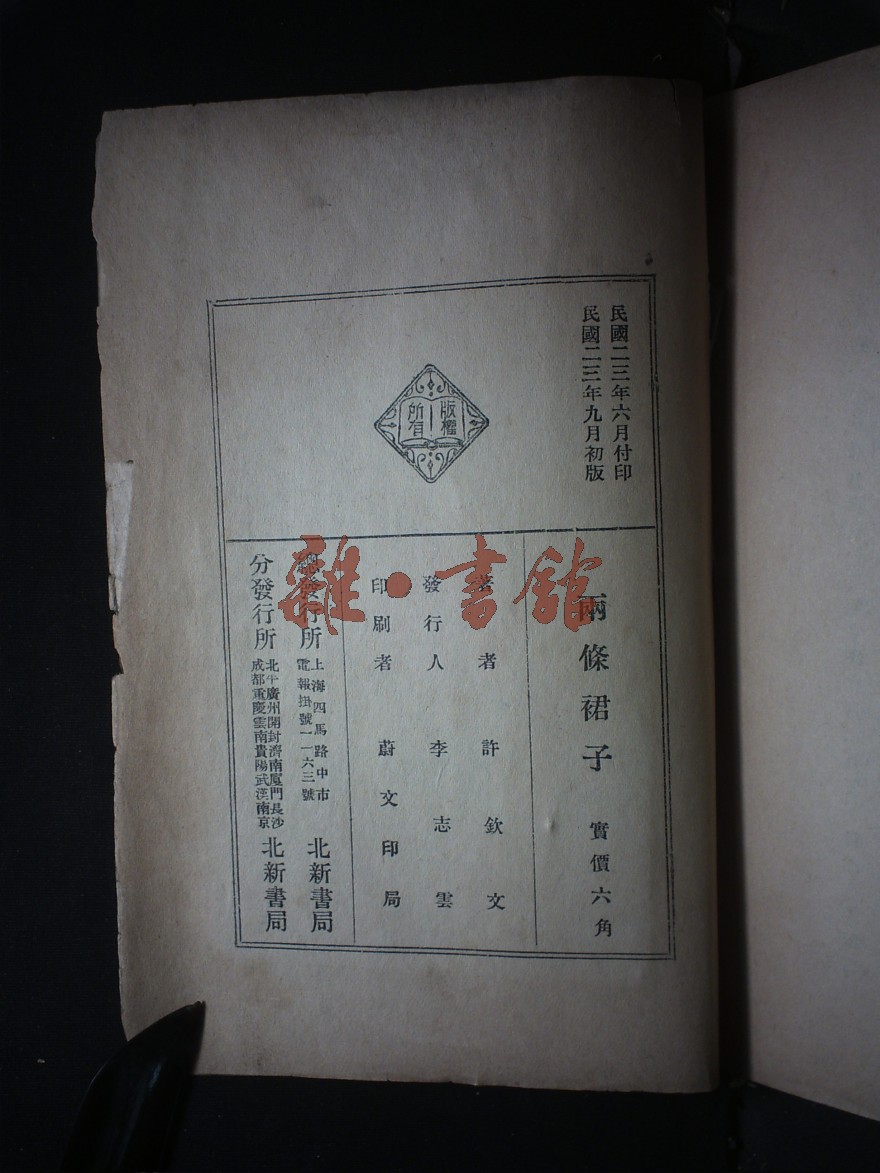 民國二三年六月付印
民國二三年九月初版
版權
所有
兩條裙子 實價六角
著者 許欽文
發行人 李志雲
印刷者 蔚文印局
總發行所 上海四馬路中市 電報掛號一一六三號 北新書局
分發行所 北平廣州開封濟南厦門長沙 成都重慶雲南貴陽武漢南京 北新書局
雜·書館